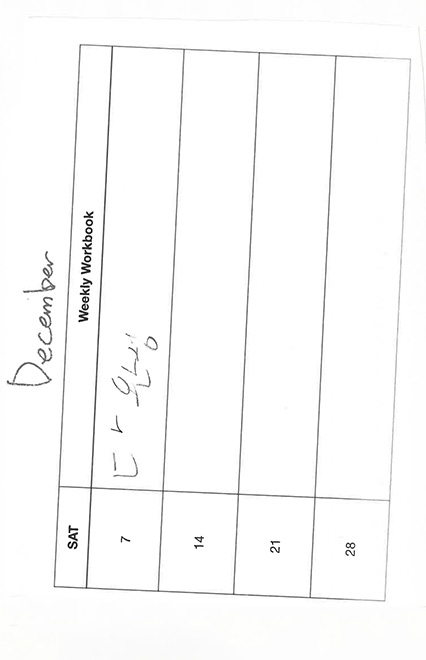 December
SAT Weekly Workbook
7 다 완성
14
21
28